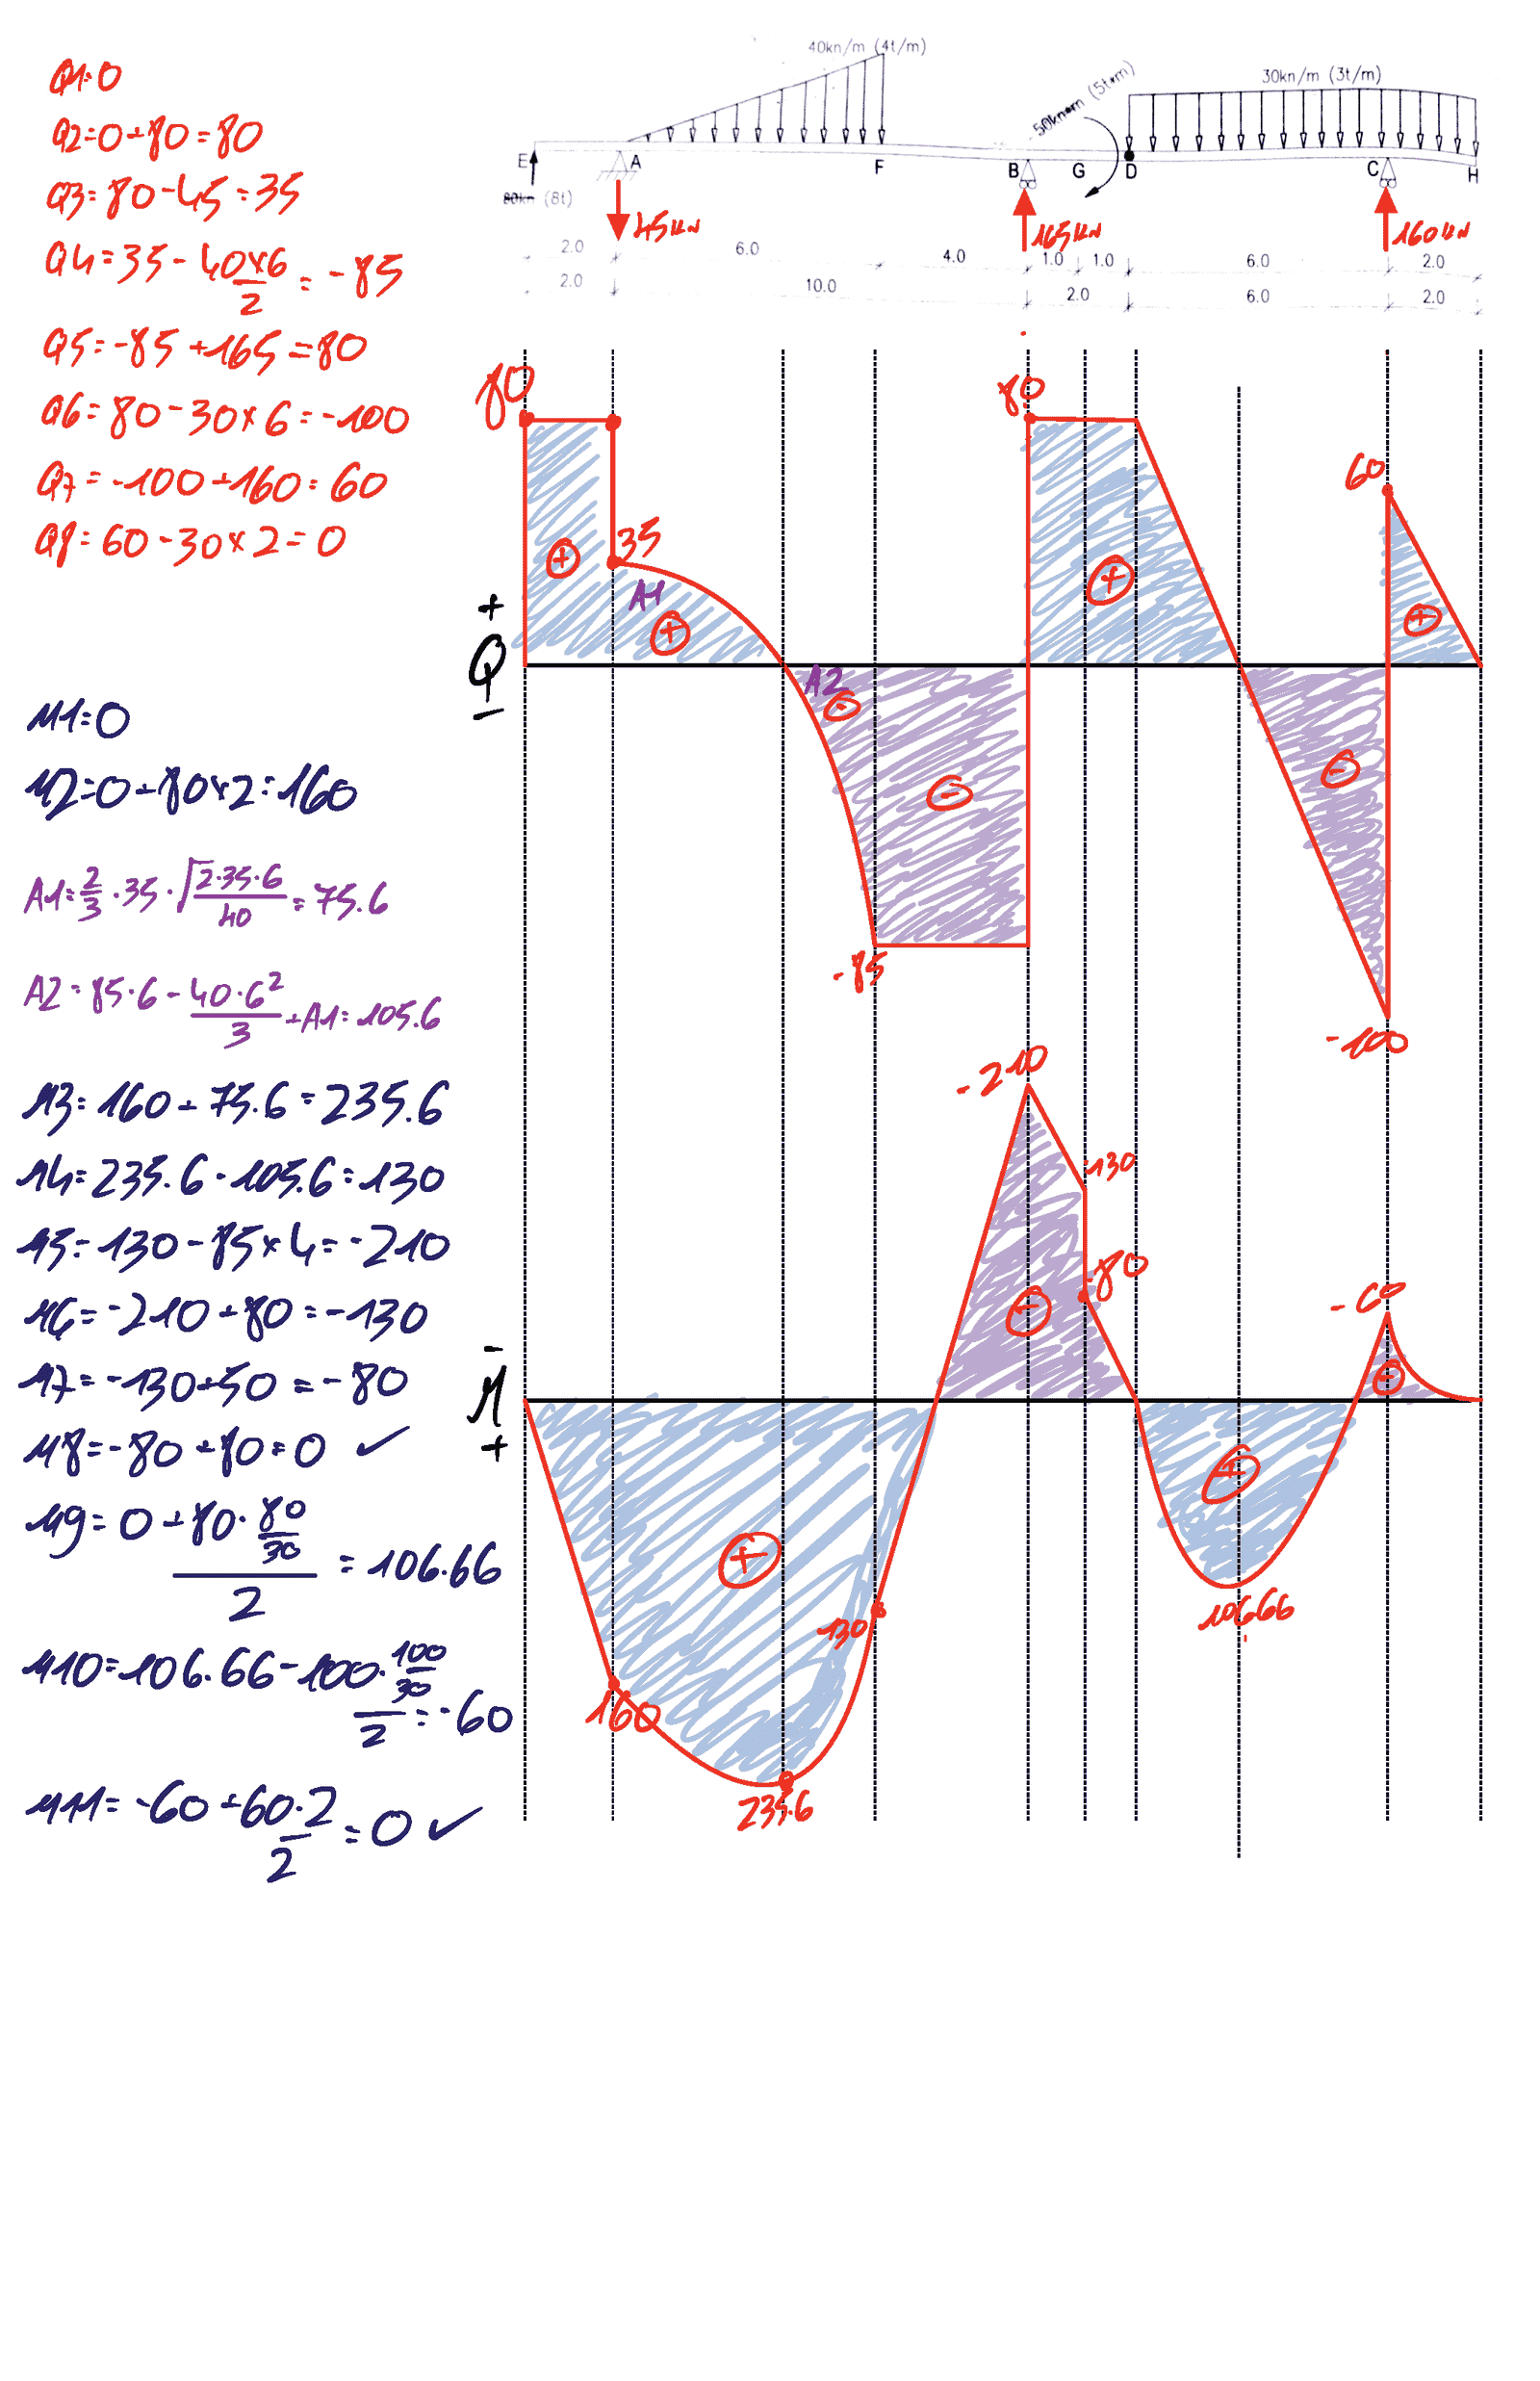 Q1=0
Q2=0+80=80
Q3=80-45=35
Q4=35-40×6/2=-85
Q5=-85+165=80
Q6=80-30×6=-100
Q7=-100+160=60
Q8=60-30×2=0
40kn/m (4t/m)
50kn*m (5t*m)
30kn/m (3t/m)
E
A
F
B
G
D
C
H
80kn (8t)
45kN
165kN
160kN
2.0
6.0
4.0
1.0
1.0
6.0
2.0
2.0
10.0
2.0
6.0
2.0
80
80
60
35
A1
+
+
+
+
+
Q
-
A2
-
-
-
-85
-100
M1=0
M2=0+80×2=160
A1=2/3·35·√2·35·6/40=75.6
A2=85·6-40·6²/3+A1=105.6
M3=160+75.6=235.6
M4=235.6-105.6=130
M5=130-85×4=-210
M6=-210+80=-130
M7=-130+50=-80
M8=-80+80=0 ✓
M9=0+80·80/30/2=106.66
M10=106.66-100·100/30/2=-60
M11=-60+60·2/2=0 ✓
-210
-130
-80
-60
-
-
-
M
+
+
+
130
160
235.6
106.66